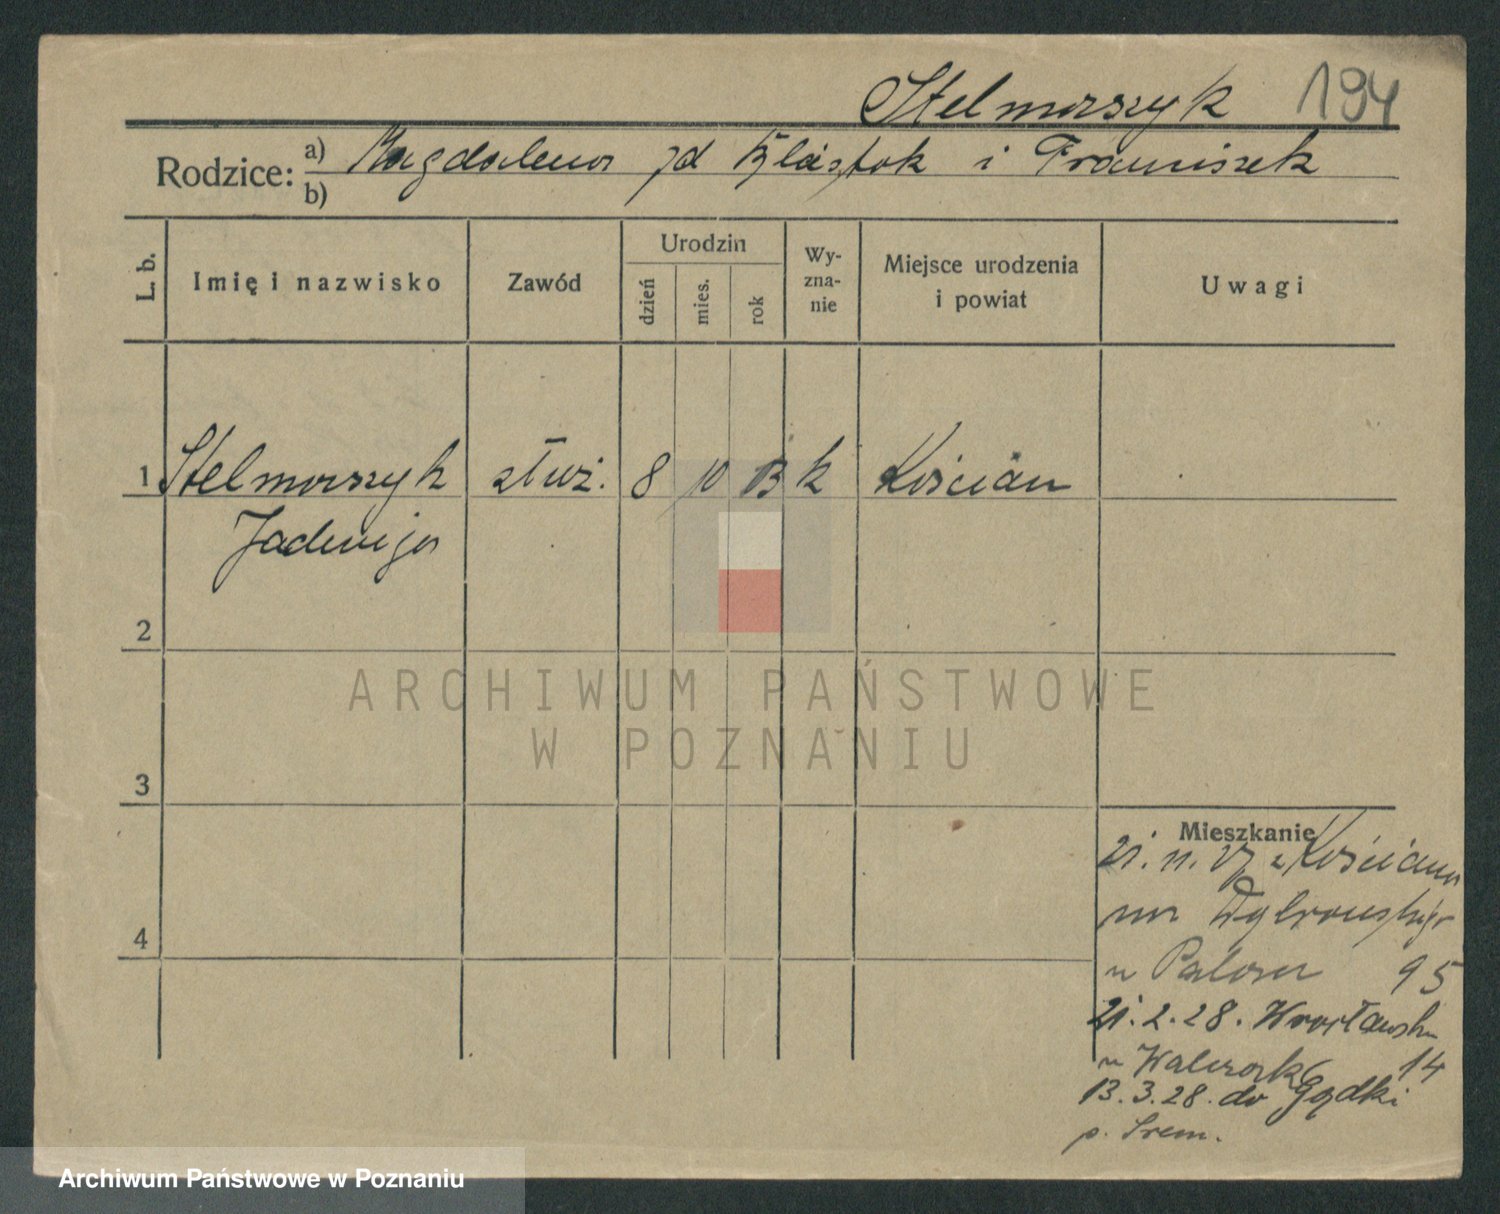 Stelmaszyk 194
Rodzice: a) Magdalena zd i Franciszek
b)
L. b. Imię i nazwisko Zawód Urodzin dzień mies. rok Wyznanie Miejsce urodzenia i powiat Uwagi
1 Stelmaszyk służ. 8 10 13 k Kościan
Jadwiga
2
3
4
Mieszkanie
21. 11. 27 z Kościana
na
u 95
21. 2. 28. Wrocławska
u Walczak 14
13. 3. 28. do Gądki
p. Śrem.
ARCHIWUM PAŃSTWOWE
W POZNANIU
Archiwum Państwowe w Poznaniu